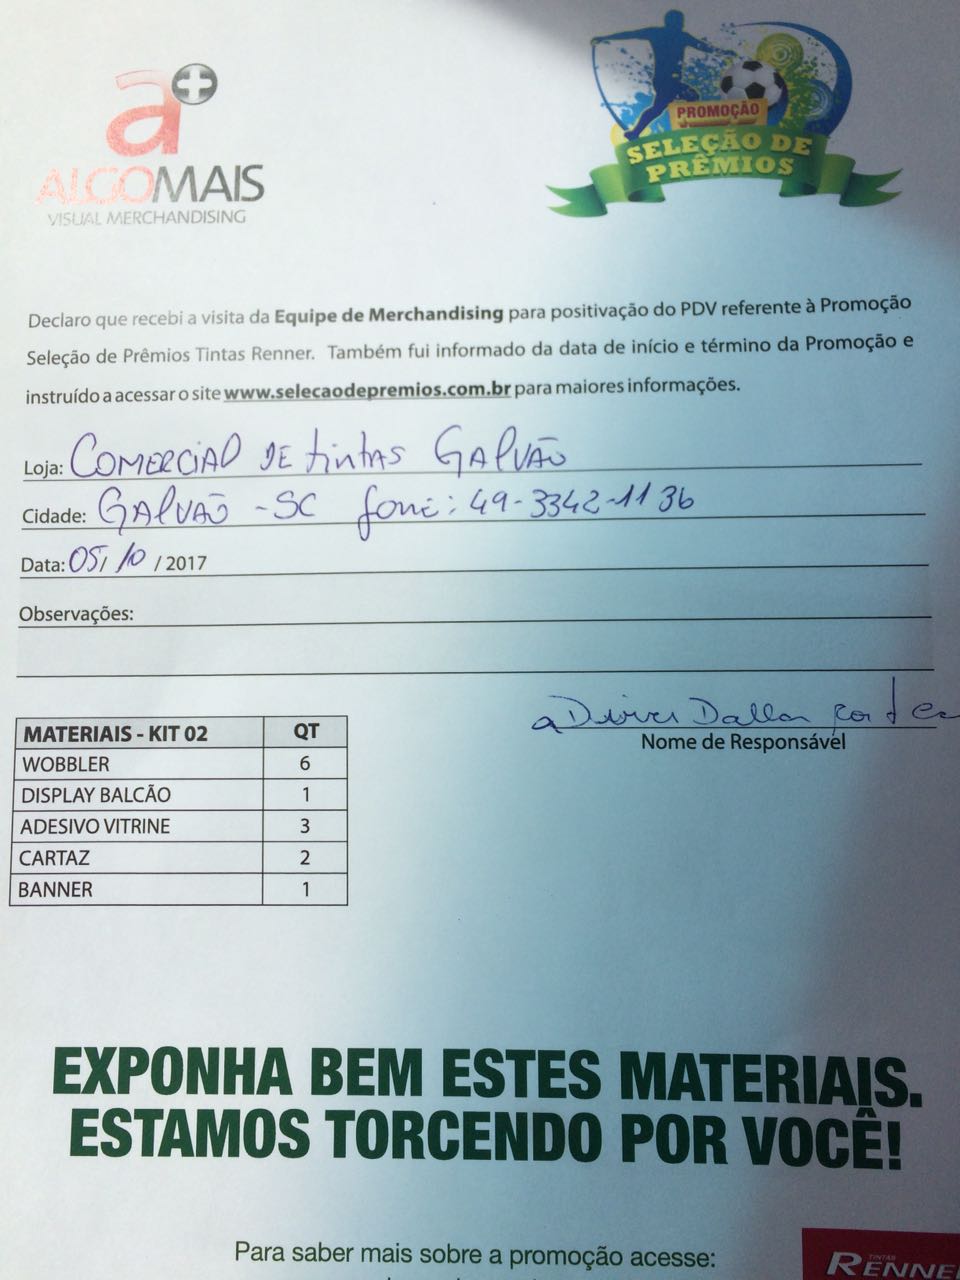 a+
ALGOMAIS
VISUAL MERCHANDISING
PROMOÇÃO
SELEÇÃO DE
PRÊMIOS
Declaro que recebi a visita da Equipe de Merchandising para positivação do PDV referente à Promoção
Seleção de Prêmios Tintas Renner. Também fui informado da data de início e término da Promoção e
instruído a acessar o site www.selecaodepremios.com.br para maiores informações.
Loja: COMERCIAL DE tintas GALVÃO
Cidade: GALVÃO - SC fone: 49-3342-1136
Data: 05/10 / 2017
Observações:
Dallas
Nome de Responsável
MATERIAIS - KIT 02 QT
WOBBLER 6
DISPLAY BALCÃO 1
ADESIVO VITRINE 3
CARTAZ 2
BANNER 1
EXPONHA BEM ESTES MATERIAIS.
ESTAMOS TORCENDO POR VOCÊ!
Para saber mais sobre a promoção acesse:
TINTAS
RENNE